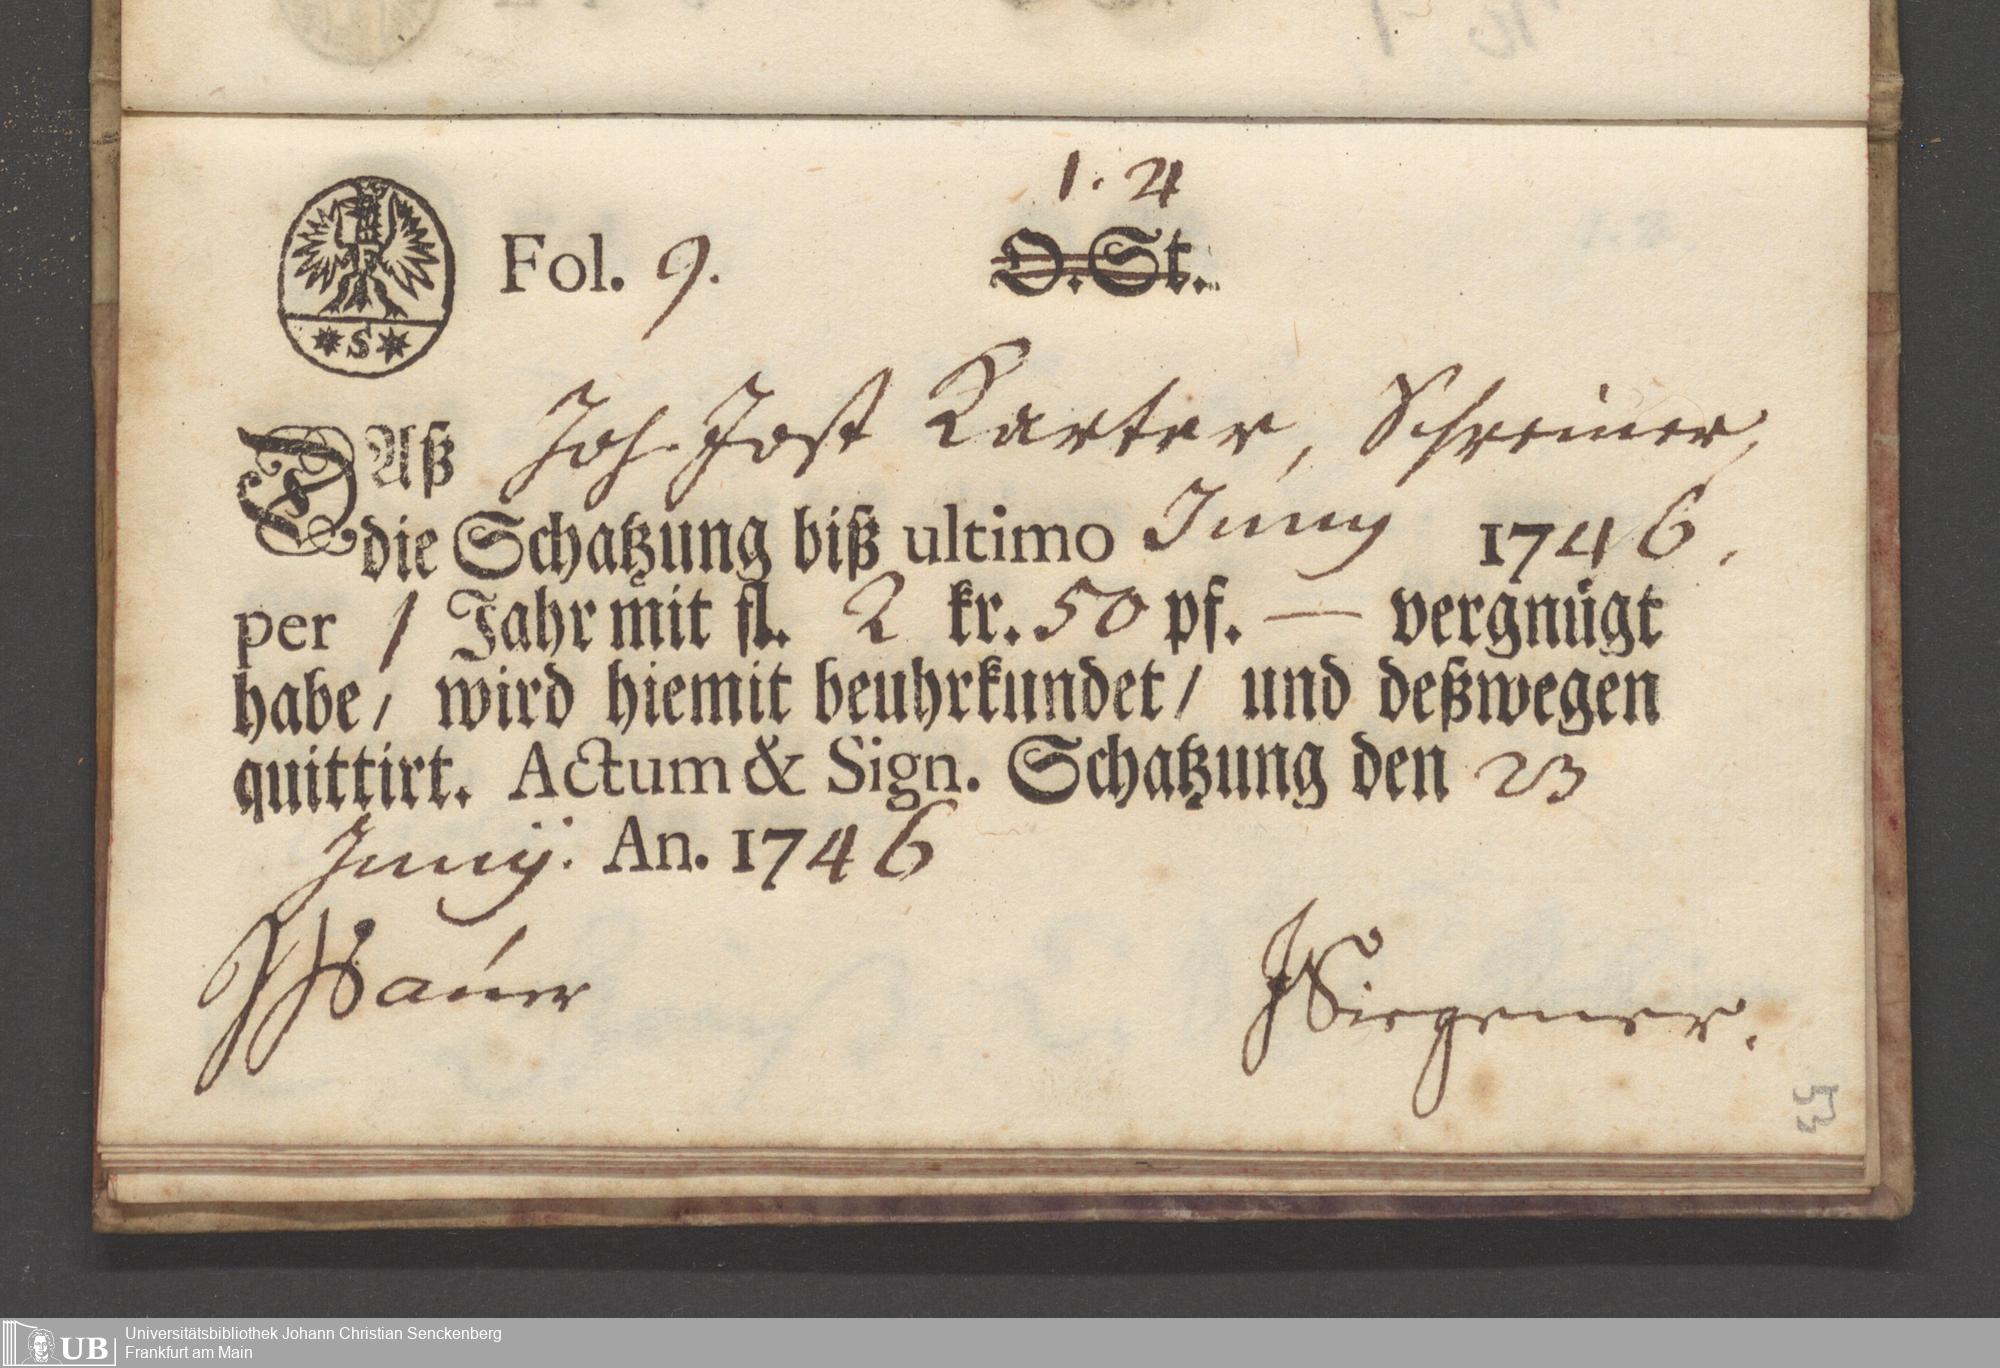 1. 4
Fol. 9. D.St.
* S *
DAß Joh. Jost Karter, Schreiner,
die Schatzung biß ultimo Juny 1746.
per 1 Jahr mit fl. 2 kr. 50 pf. — vergnügt
habe / wird hiemit beuhrkundet / und deßwegen
quittirt. Actum & Sign. Schatzung den 23
Junij. An. 1746
53
UB Universitätsbibliothek Johann Christian Senckenberg
Frankfurt am Main